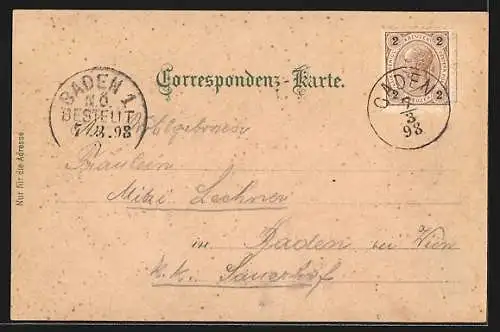 Correspondenz-Karte.
2 2
2 2
GADEN
3
98
BADEN 1
N.Ö.
BESTELLT
98
Nur für die Adresse
Wohlgeboren
Fräulein
Mitzi Lechner
in Baden bei Wien
k.k. Sauerhof